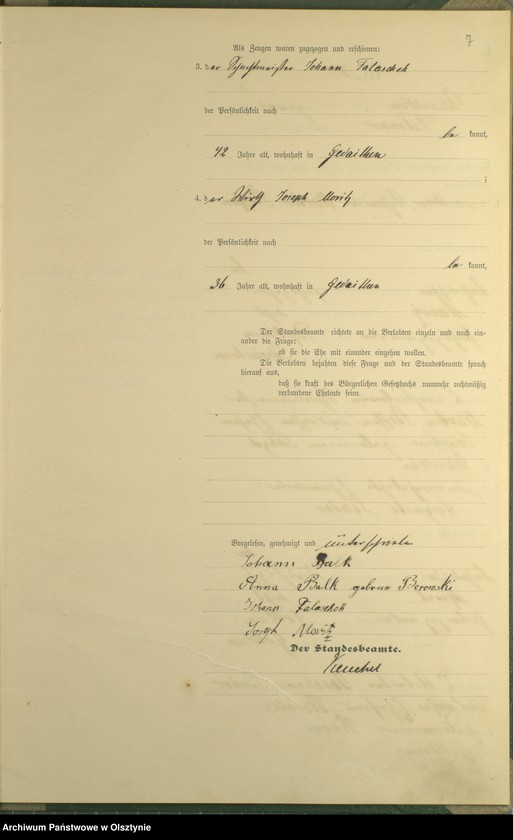 7
Als Zeugen waren zugezogen und erschienen:
3. der Schachtmeister Johann Falaschek
der Persönlichkeit nach
be kannt,
42 Jahre alt, wohnhaft in Gedaithen
;
4. der Wirth Joseph Moritz
der Persönlichkeit nach
be kannt,
36 Jahre alt, wohnhaft in Gedaithen
Der Standesbeamte richtete an die Verlobten einzeln und nach ein-
ander die Frage:
ob sie die Ehe mit einander eingehen wollen.
Die Verlobten bejahten diese Frage und der Standesbeamte sprach
hierauf aus,
daß sie kraft des Bürgerlichen Gesetzbuchs nunmehr rechtmäßig
verbundene Eheleute seien.
Vorgelesen, genehmigt und unterschrieben
Johann Balk
Anna Balk geborene Berowski
Johann Falaschek
Josef Moritz
Der Standesbeamte.
Archiwum Państwowe w Olsztynie